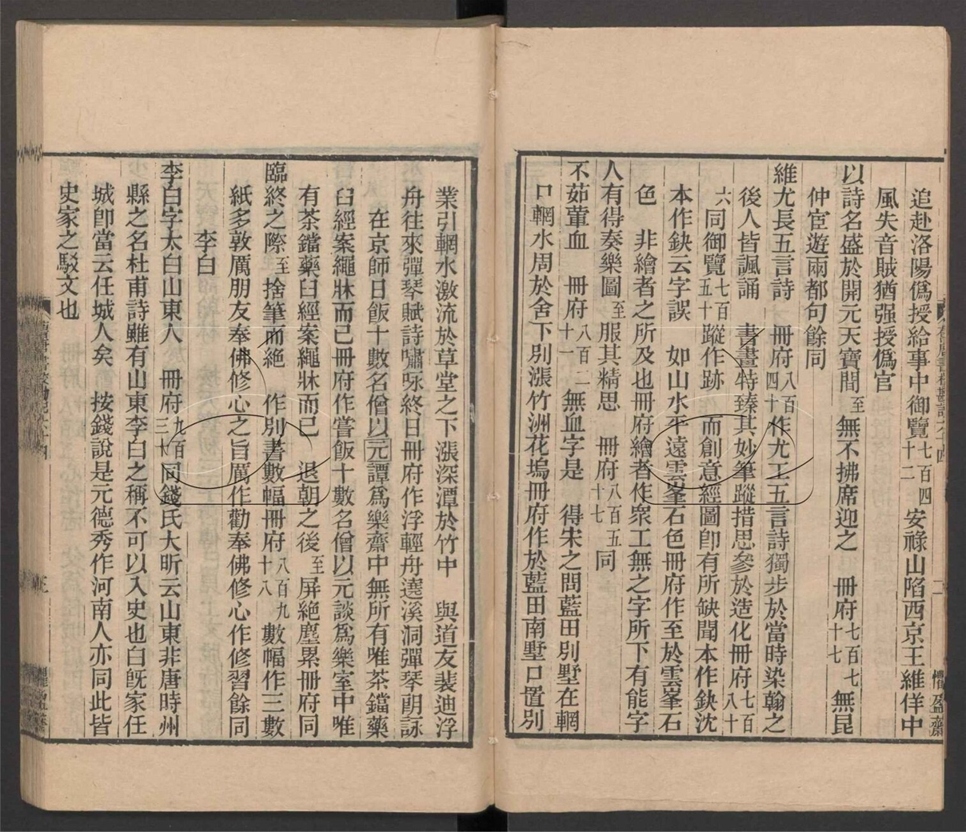 追赴洛陽僞授給事中御覽七百四十二安祿山陷西京王維佯中
風失音賊猶强授僞官
以詩名盛於開元天寶間至無不拂席迎之　冊府七百七十七無昆
仲宦遊兩都句餘同
維尤長五言詩　冊府八百四十作尤工五言詩獨步於當時染翰之
後人皆諷誦　書畫特臻其妙筆蹤措思參於造化冊府七百八十
六同御覽七百五十蹤作跡　而創意經圖卽有所缺聞本作鈌沈
本作鈌云字誤　如山水平遠雲峯石色冊府作至於雲峯石
色　非繪者之所及也冊府繪者作衆工無之字所下有能字
人有得奏樂圖至服其精思　冊府八百五十七同
不茹葷血　冊府八百二十一無血字是　得宋之問藍田別墅在輞
口輞水周於舍下別漲竹洲花塢冊府作於藍田南墅口置別
業引輞水激流於草堂之下漲深潭於竹中　與道友裴迪浮
舟往來彈琴賦詩嘯咏終日冊府作浮輕舟邊溪洞彈琴朗詠
在京師日飯十數名僧以元譚爲樂齋中無所有唯茶鐺藥
臼經案繩牀而已冊府作嘗飯十數名僧以元談爲樂室中唯
有茶鐺藥臼經案繩牀而已　退朝之後至屏絶塵累冊府同
臨終之際至捨筆而絕　作別書數幅冊府八百九十八數幅作三數
紙多敦厲朋友奉佛修心之旨厲作勸奉佛修心作修習餘同
李白
李白字太白山東人　冊府九百三十同錢氏大昕云山東非唐時州
縣之名杜甫詩雖有山東李白之稱不可以入史也白旣家任
城卽當云任城人矣　按錢說是元德秀作河南人亦同此皆
史家之駁文也
懼盈齋